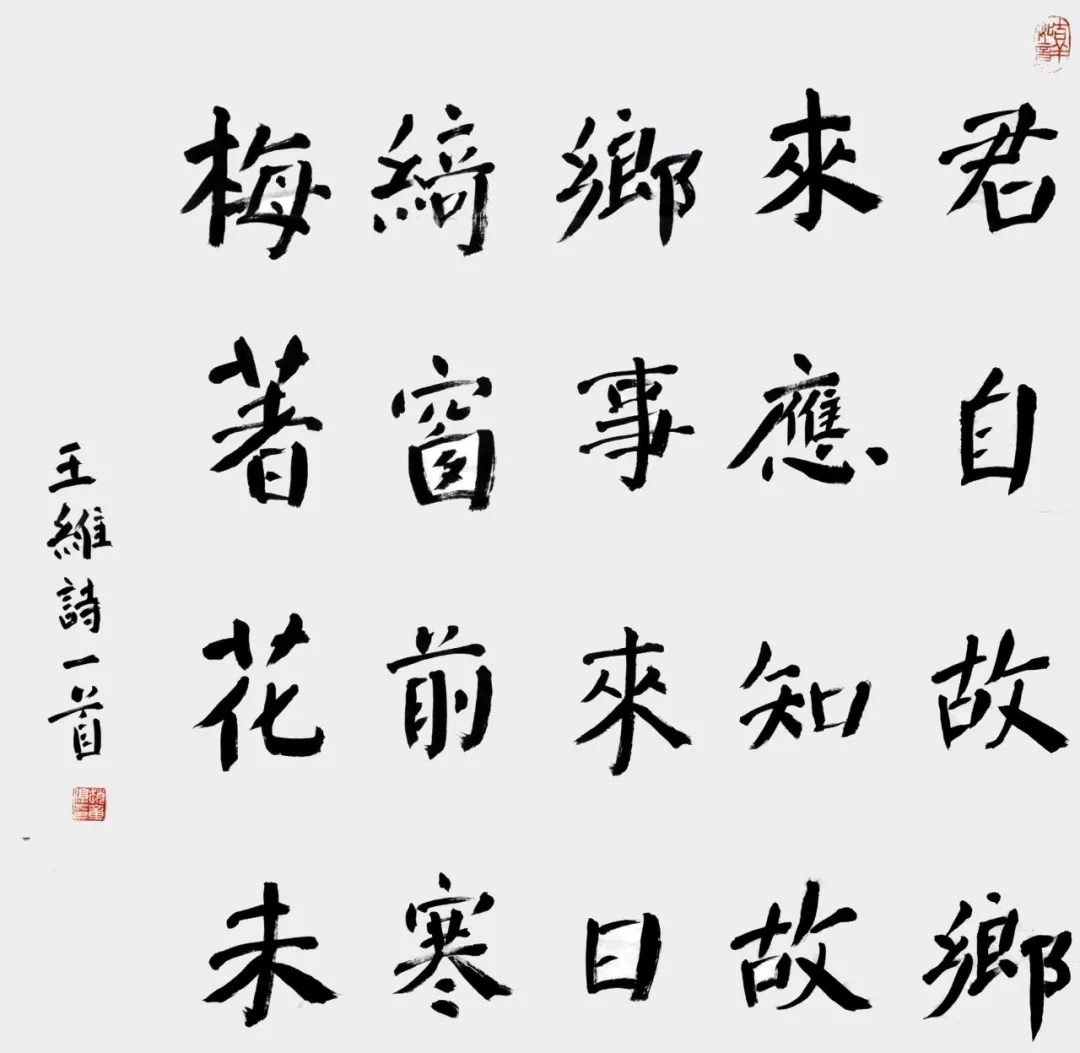 君自故鄉
來應知故
鄉事來日
綺窗前寒
梅著花未
王維詩一首